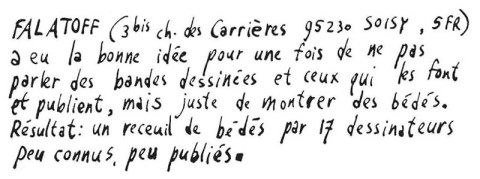 FALATOFF (3bis ch. des Carrières 95230 SOISY, 5FR)
a eu la bonne idée pour une fois de ne pas
parler des bandes dessinées et ceux qui les font
et publient, mais juste de montrer des bédés.
Résultat: un receuil de bédés par 17 dessinateurs
peu connus, peu publiés.